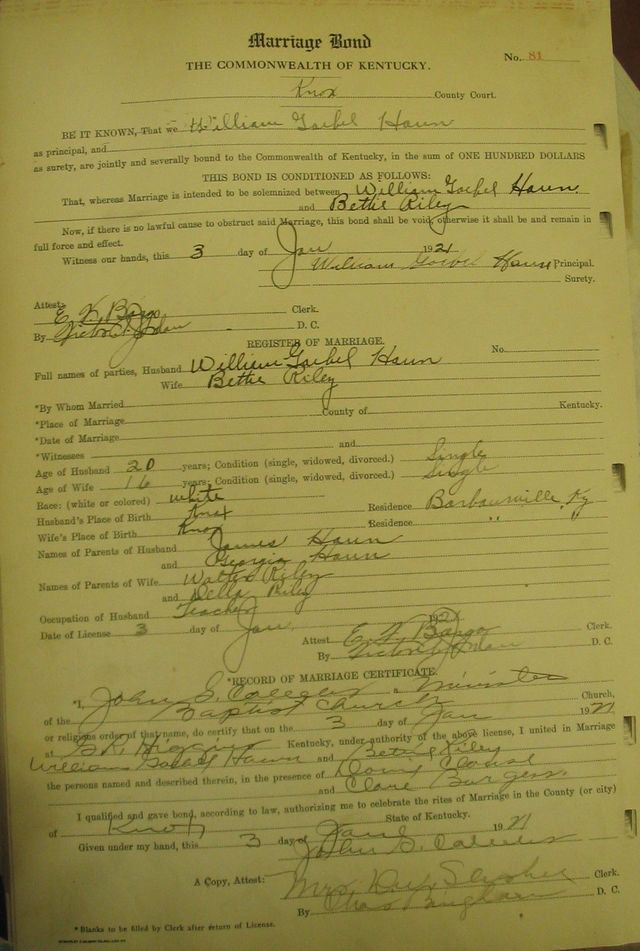 Marriage Bond
THE COMMONWEALTH OF KENTUCKY.
No. 81
Knox County Court.
BE IT KNOWN, That we William Goebel Haun
as principal, and
as surety, are jointly and severally bound to the Commonwealth of Kentucky, in the sum of ONE HUNDRED DOLLARS
THIS BOND IS CONDITIONED AS FOLLOWS:
That, whereas Marriage is intended to be solemnized between William Goebel Haun
and Bettie Riley
Now, if there is no lawful cause to obstruct said Marriage, this bond shall be void, otherwise it shall be and remain in
full force and effect.
Witness our hands, this 3 day of Jan 1921
William Goebel Haun Principal.
Surety.
Attest: Clerk.
By D. C.
REGISTER OF MARRIAGE.
Full names of parties, Husband William Goebel Haun No.
Wife Bettie Riley
*By Whom Married
*Place of Marriage County of Kentucky.
*Date of Marriage
*Witnesses and
Age of Husband 20 years; Condition (single, widowed, divorced.) Single
Age of Wife 16 years; Condition (single, widowed, divorced.) Single
Race: (white or colored) white
Husband's Place of Birth Knox Residence Barbourville, Ky
Wife's Place of Birth Knox Residence " "
Names of Parents of Husband James Haun
and Georgia Haun
Names of Parents of Wife Walter Riley
and Della Riley
Occupation of Husband Teacher
Date of License 3 day of Jan 1921
Attest Clerk.
By D. C.
*RECORD OF MARRIAGE CERTIFICATE.
*I, John S. a Minister
of the Baptist Church Church,
or religious order of that name, do certify that on the 3 day of Jan 1921
at Kentucky, under authority of the above license, I united in Marriage
William Goebel Haun and Bettie Riley
the persons named and described therein, in the presence of
and Clare Burgess.
I qualified and gave bond, according to law, authorizing me to celebrate the rites of Marriage in the County (or city)
of Knox State of Kentucky.
Given under my hand, this 3 day of 1921
John S.
A Copy, Attest: Mrs. Clerk.
By D. C.
*Blanks to be filled by Clerk after return of License.